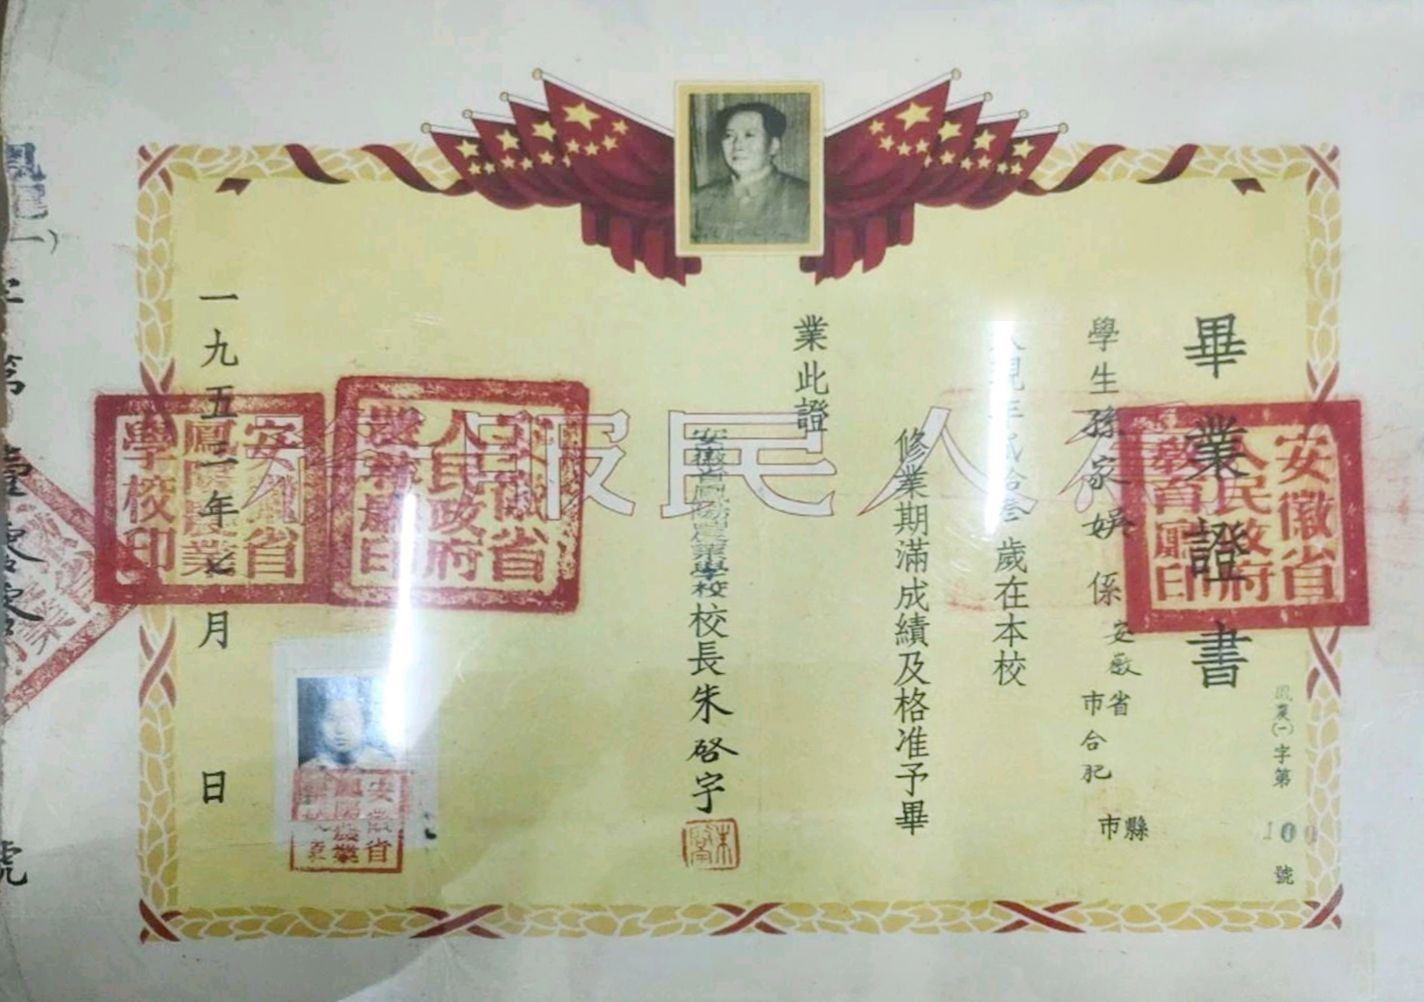 畢業證書
鳳農(一)字第100號
學生孫家娛係安徽省合肥市縣
人現年貳拾叁歲在本校
修業期滿成績及格准予畢
業此證
安徽省鳳陽農業學校校長朱啓宇
一九五二年七月日
為人民服
安徽省人民政府教育廳印
安徽省人民政府農林廳印
安徽省鳳陽農業學校印